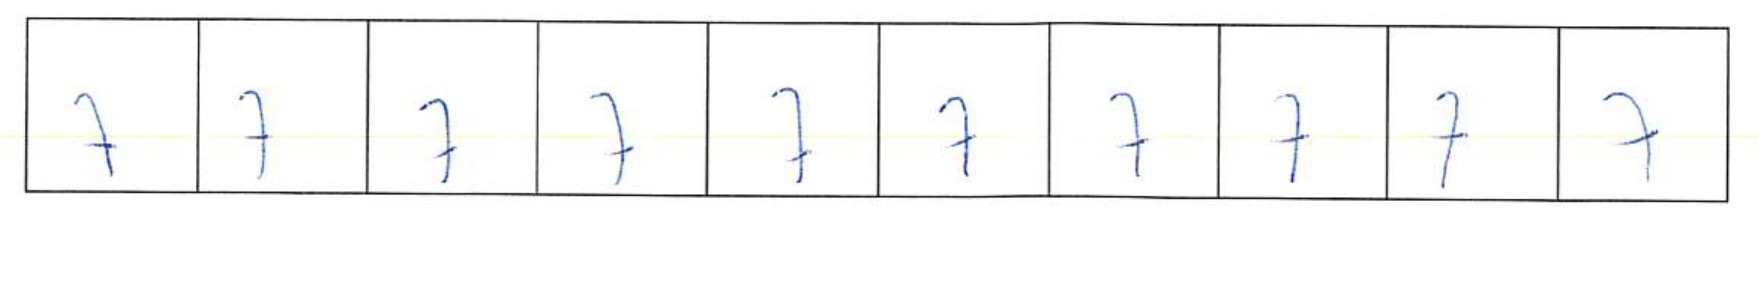 7 7 7 7 7 7 7 7 7 7